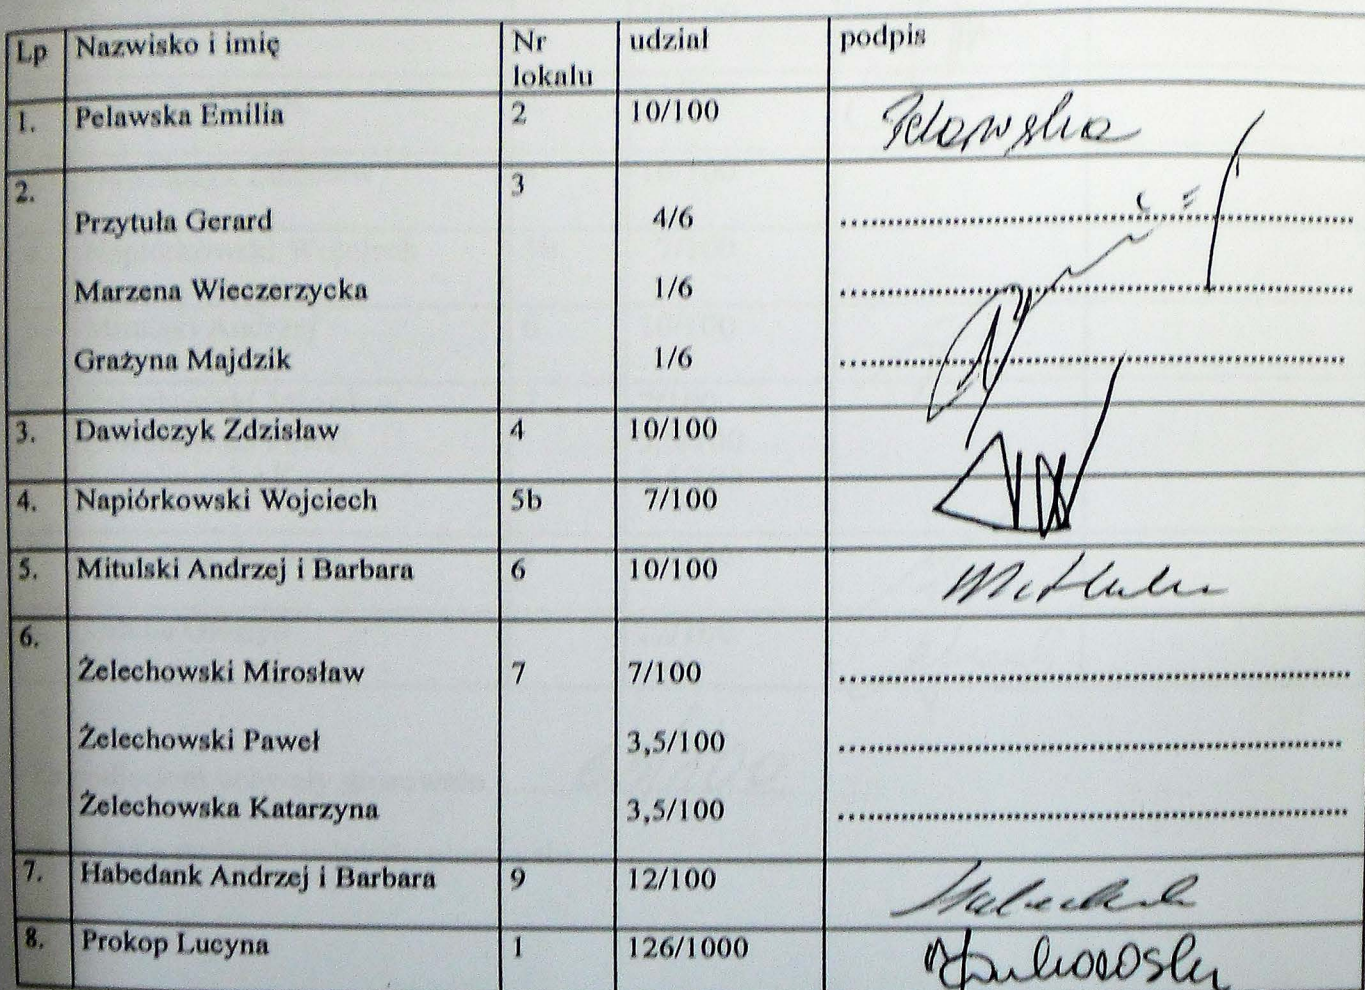 Lp Nazwisko i imię Nr lokalu udział podpis
1. Pelawska Emilia 2 10/100 Pelawska
2. 3
Przytuła Gerard 4/6
Marzena Wieczerzycka 1/6
Grażyna Majdzik 1/6
3. Dawidczyk Zdzisław 4 10/100
4. Napiórkowski Wojciech 5b 7/100
5. Mitulski Andrzej i Barbara 6 10/100
6.
Żelechowski Mirosław 7 7/100
Żelechowski Paweł 3,5/100
Żelechowska Katarzyna 3,5/100
7. Habedank Andrzej i Barbara 9 12/100
8. Prokop Lucyna 1 126/1000